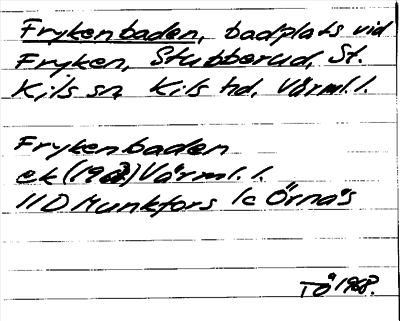 Frykenbaden, badplats vid
Fryken, Stubberud, St.
Kils sn Kils hd, Värml. l.
Frykenbaden
ek Värml. l.
11D Munkfors 1c Örnäs
TÅ 1968.